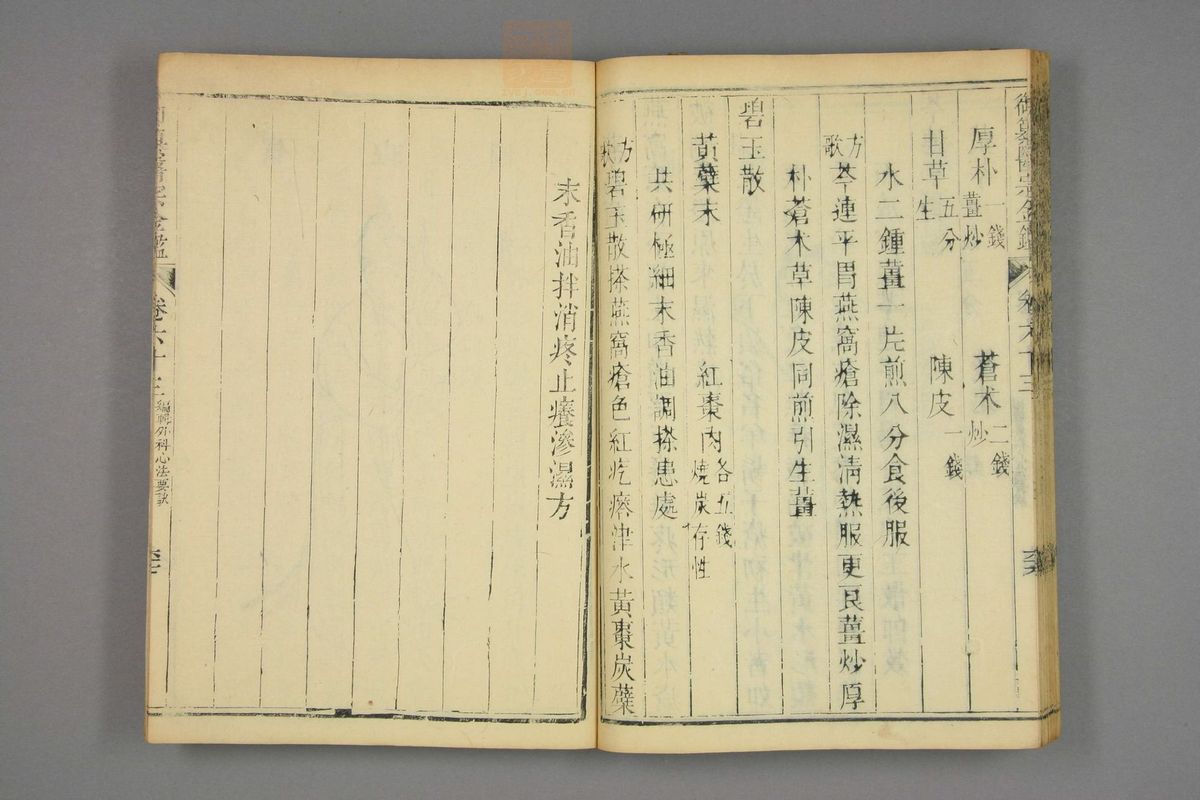 御纂醫宗金鑑 卷六十三
厚朴一錢薑炒 蒼朮炒二錢
甘草五分生 陳皮一錢
水二鍾薑一片煎八分食後服
方歌 芩連平胃燕窩瘡除濕清熱服更良薑炒厚
朴蒼朮草陳皮同煎引生薑
碧玉散
黃蘗末 紅棗肉燒炭存性各五錢
共研極細末香油調搽患處
方歌 碧玉散搽燕窩瘡色紅疙瘩津水黃棗炭蘗
末香油拌消疼止癢滲濕方
卷六十三 編輯外科心法要訣